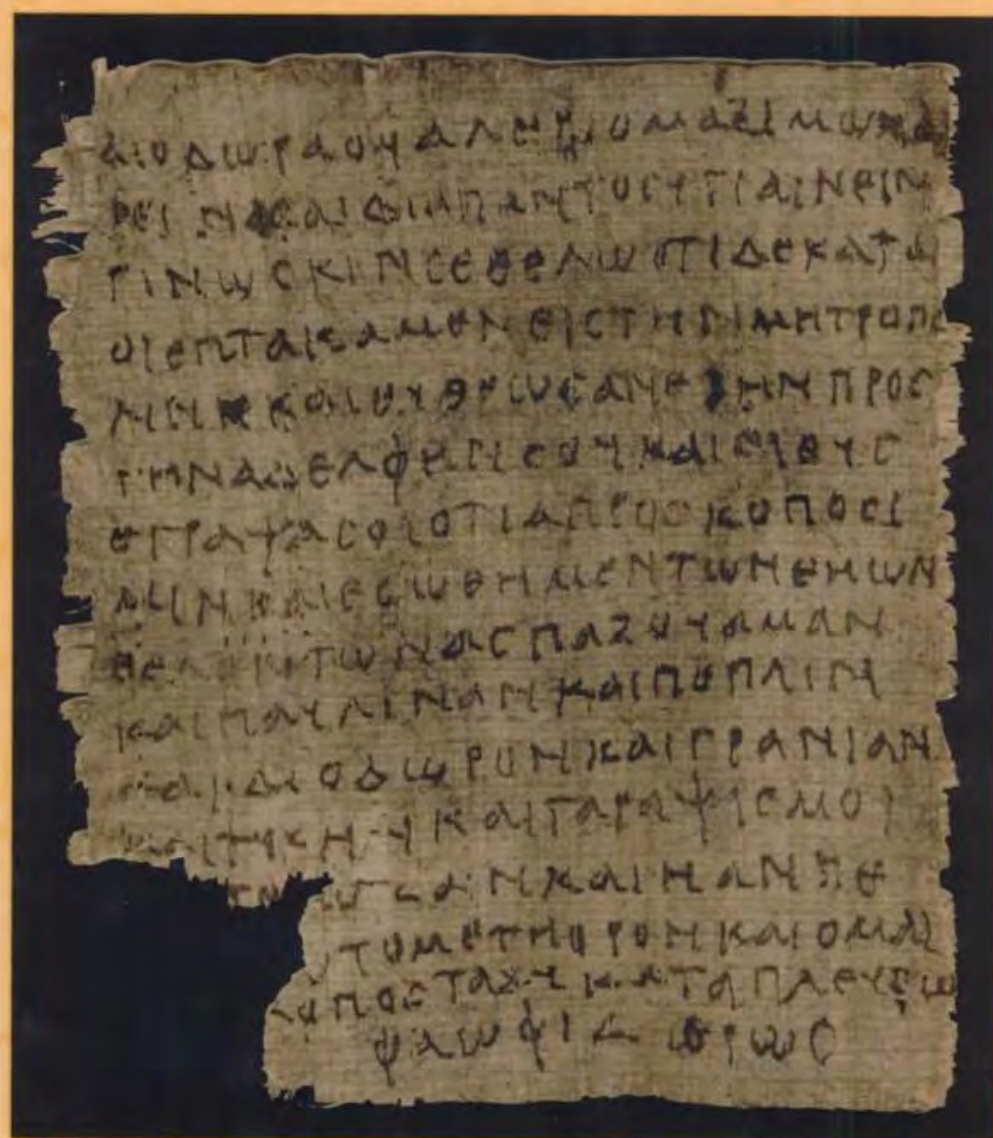 ΔΙΟΔΩΡΑΟΥΑΛΕΡΙΟΜΑΞΙΜΩΧΑ
ΡΕΙΝΚΑΙΔΙΑΠΑΝΤΟΣΥΓΙΑΙΝΕΙΝ
ΓΙΝΩΣΚΙΝΣΕΘΕΛΩΟΤΙΔΕΚΑΤΑ
ΟΙΕΠΤΑΙΚΑΜΕΝΕΙΣΤΗΝΜΗΤΡΟΠΟ
ΛΙΝΚΑΙΕΥΘΕΩΣΑΝΕΒΗΝΠΡΟΣ
ΤΗΝΑΔΕΛΦΕΝΣΟΥΚΑΙΕΥΘΥΣ
ΕΓΡΑΨΑΣΟΙΟΤΙΑΠΡΟΣΚΟΠΟΣΙ
ΜΙΝΚΑΙΕΣΩΘΗΜΕΝΤΩΝΘΗΩΝ
ΘΕΛΟΝΤΩΝΑΣΠΑΖΟΥΑΜΑΝ
ΚΑΙΠΑΥΛΙΝΑΝΚΑΙΠΟΠΛΙΝ
ΚΑΙΔΙΟΔΩΡΟΝΚΑΙΓΡΑΝΙΑΝ
ΚΑΙΤΥΧΗΝΚΑΙΤΑΡΑΨΙΣΜΟΙ
ΚΑΙΗΑΝΠΕ
ΤΟΜΕΤΗΟΡΟΝΚΑΙΟΜΑΣ
ΟΠΟΣΤΑΧΥΚΑΤΑΠΛΕΥΣΩ
ΦΑΩΦΙΔ